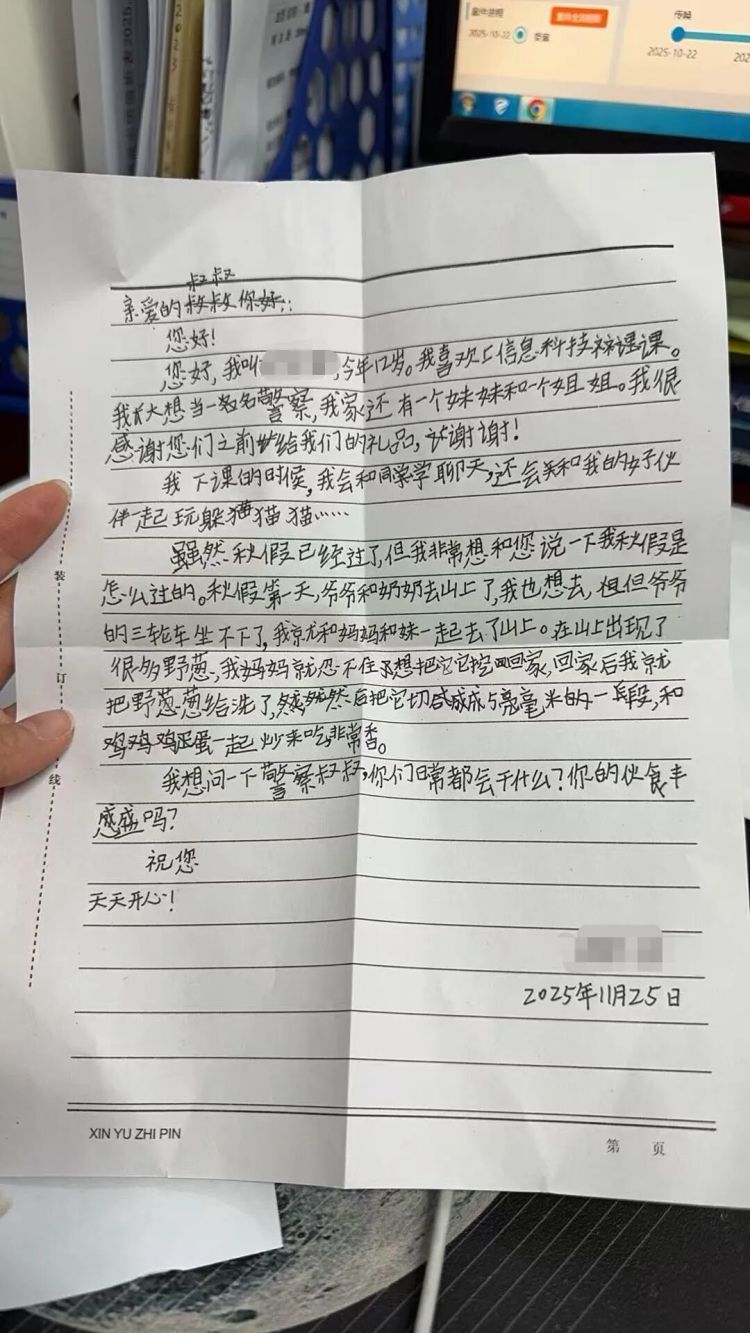 案件进程
2025-10-22
受案
传唤
2025-10-22
202
2023
叔叔
亲爱的叔叔你好:
您好!
您好,我叫 ,今年12岁。我喜欢上信息科技课。
我长大想当一名警察,我家还有一个妹妹和一个姐姐。我很
感谢您们之前给我们的礼品,谢谢!
我下课的时候,我会和同学聊天,还会和我的好伙
伴一起玩躲猫猫……
虽然秋假已经过了,但我非常想和您说一下我秋假是
怎么过的。秋假第一天,爷爷和奶奶去山上了,我也想去,但爷爷
的三轮车坐不下了,我就和妈妈和妹一起去了山上。在山上出现了
很多野葱,我妈妈就忍不住想把它挖回家,回家后我就
把野葱给洗了,然后把它切成5毫米的一段,和
鸡蛋一起炒来吃,非常香。
我想问一下警察叔叔,你们日常都会干什么?你的伙食丰
盛吗?
祝您
天天开心!
2025年11月25日
装
订
线
XIN YU ZHI PIN
第 页